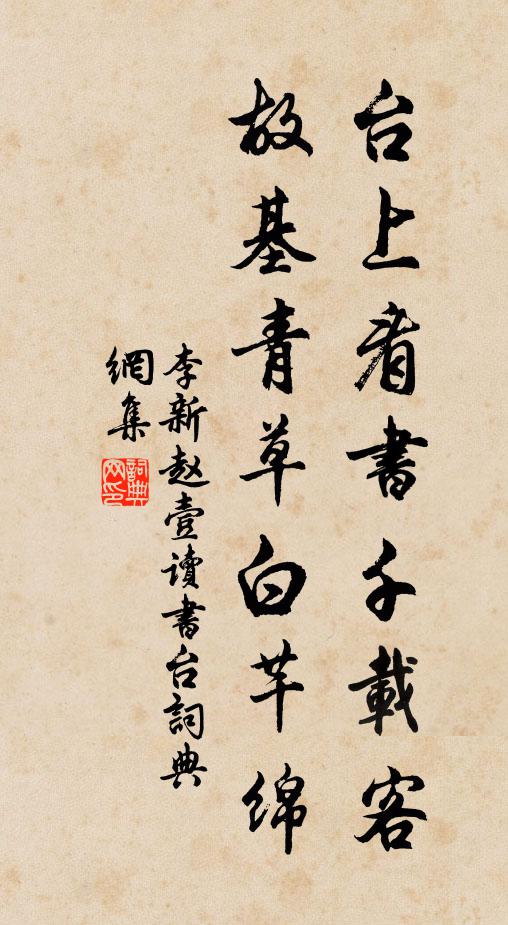 台上看書千載客
故基青草白芊綿
李新赵壹讀書台詞典
網集
詞典网印